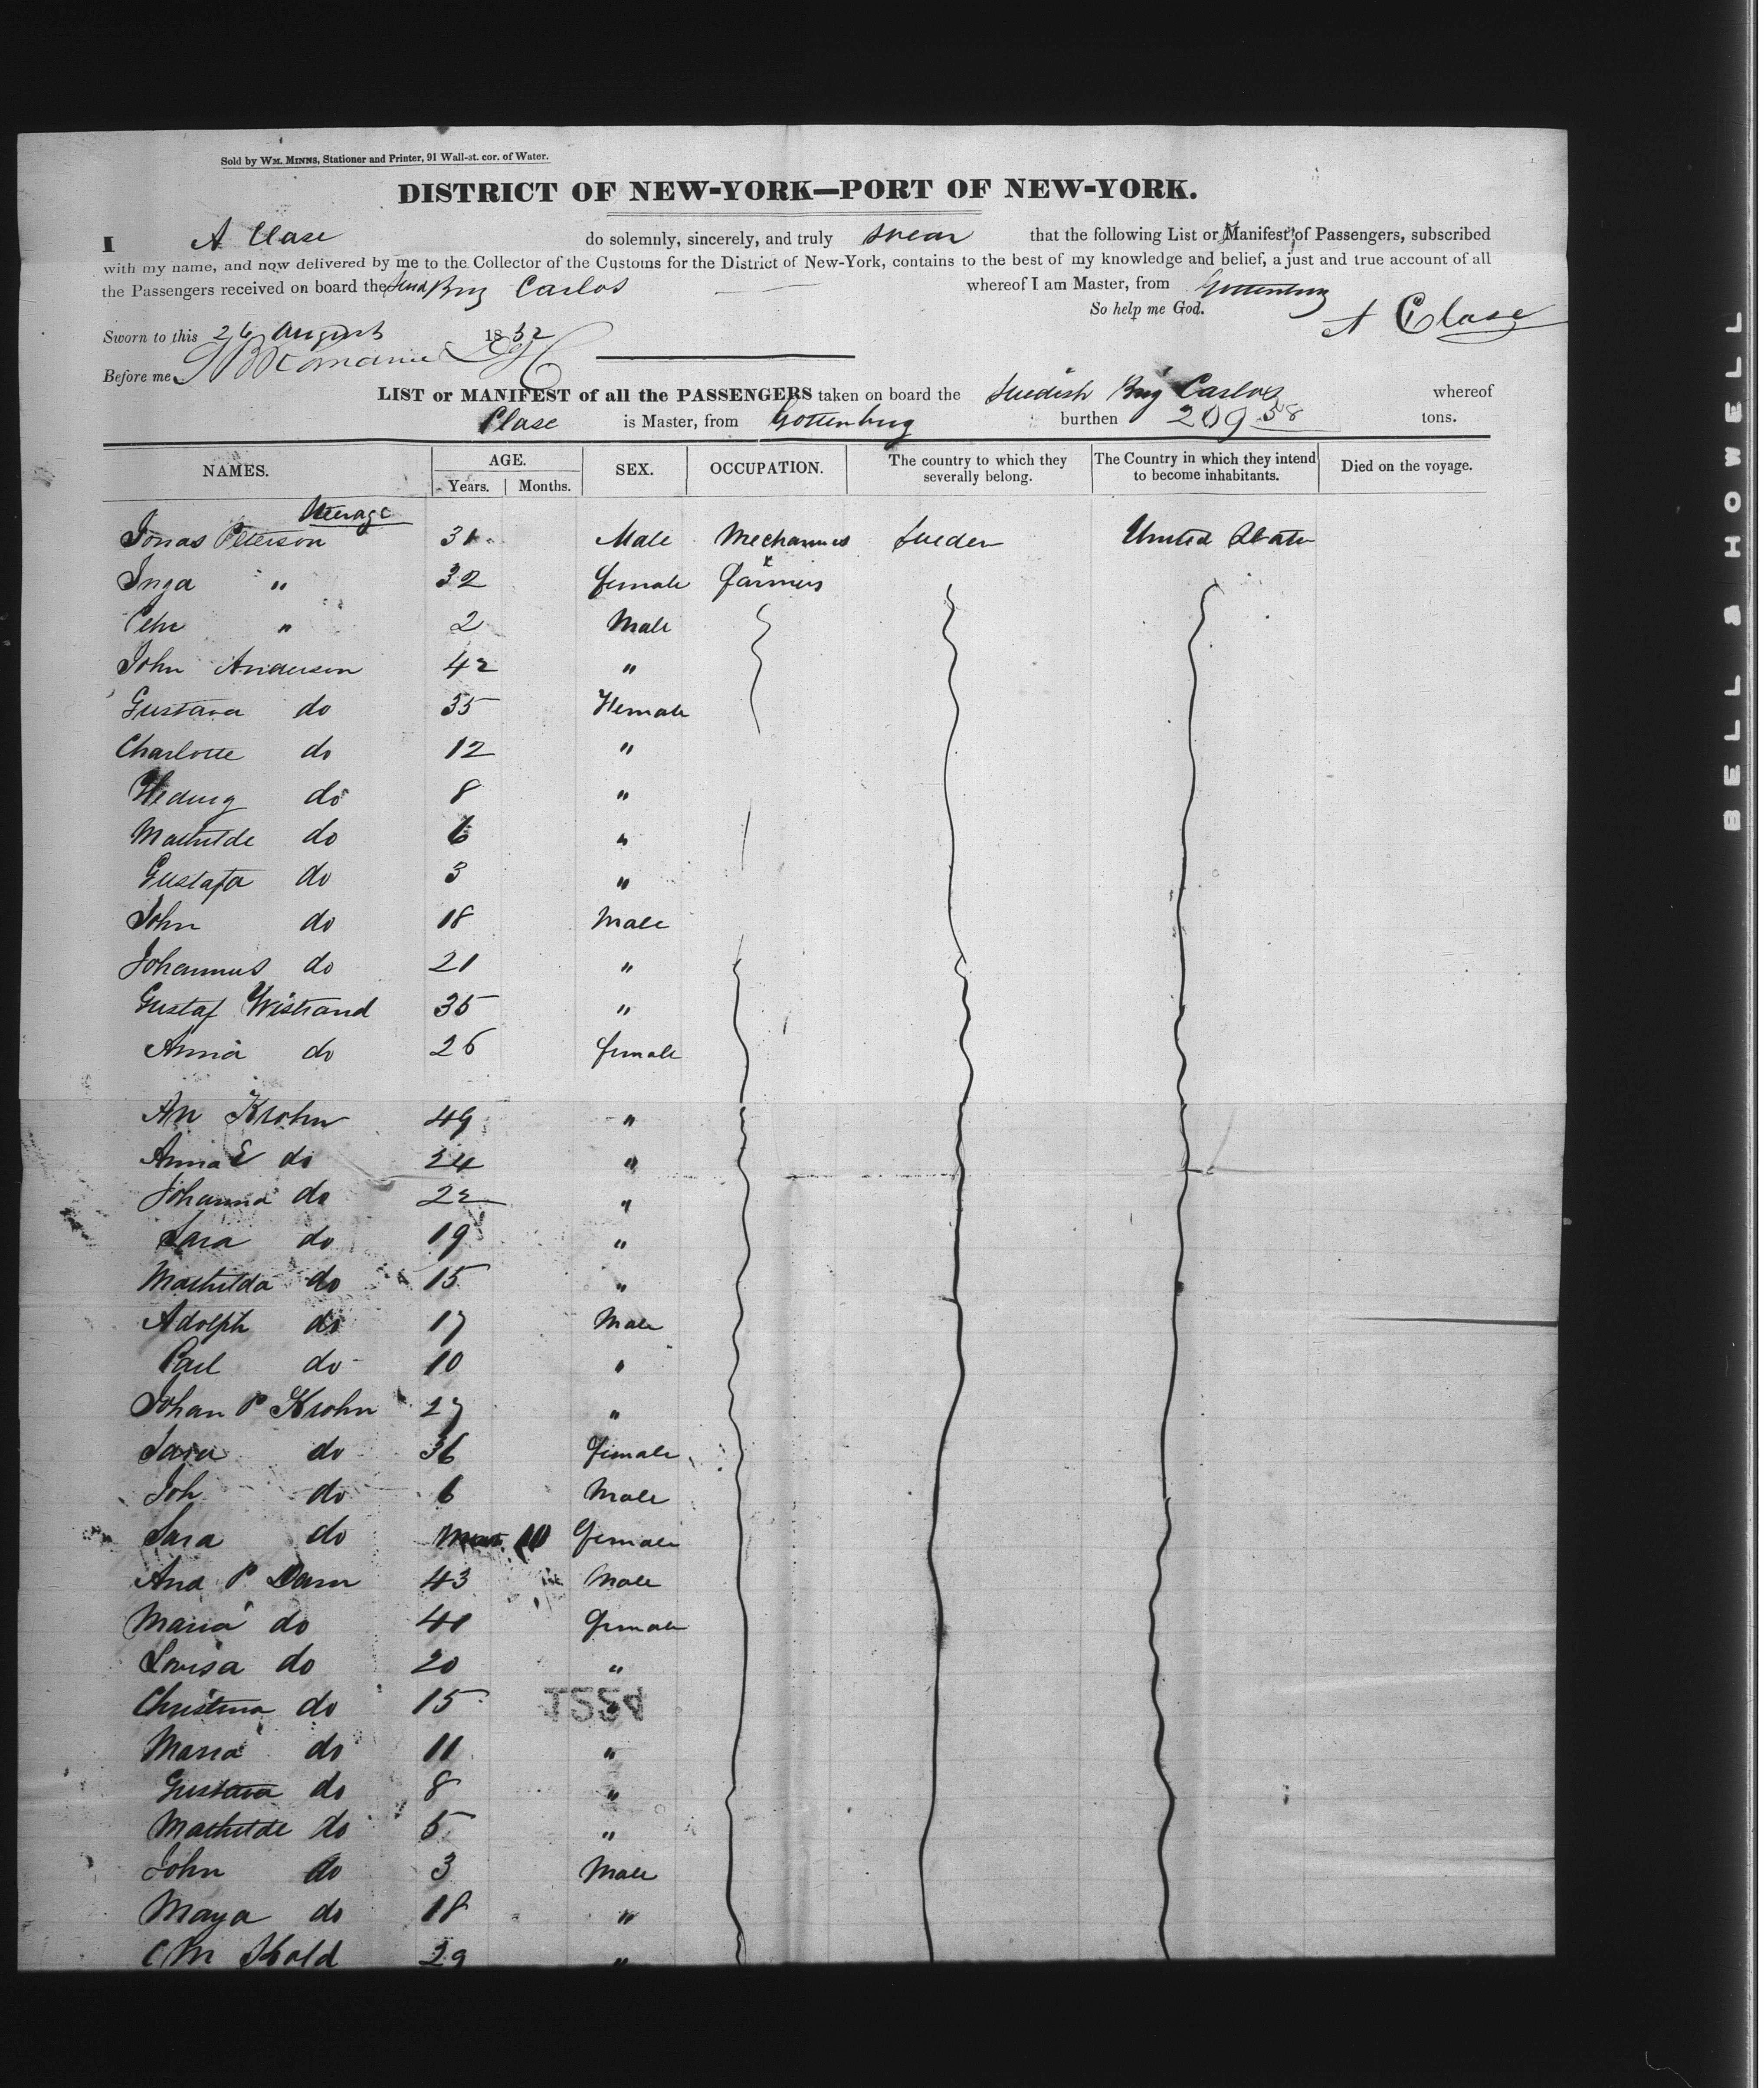 Sold by WM. MINNS, Stationer and Printer, 91 Wall-st. cor. of Water.
DISTRICT OF NEW-YORK—PORT OF NEW-YORK.
I A Clase do solemnly, sincerely, and truly swear that the following List or Manifest of Passengers, subscribed
with my name, and now delivered by me to the Collector of the Customs for the District of New-York, contains to the best of my knowledge and belief, a just and true account of all
the Passengers received on board the Brig Carlos whereof I am Master, from Gottenburg
So help me God.
A Clase
Sworn to this 26 August 1852
Before me
LIST or MANIFEST of all the PASSENGERS taken on board the Swedish Brig Carlos whereof
Clase is Master, from Gottenburg burthen 209 58 tons.
NAMES. AGE. Years. Months. SEX. OCCUPATION. The country to which they severally belong. The Country in which they intend to become inhabitants. Died on the voyage.
Steerage
Jonas Peterson 31 Male Mechanics Sueden United States
Inga " 32 female farmers
Pehr " 2 Male
John Anderson 42 "
Gustava do 35 Female
Charlotte do 12 "
Hedwig do 8 "
Mathilde do 6 "
Gustafa do 3 "
John do 18 Male
Johannus do 21 "
Gustaf Wistrand 35 "
Anna do 26 female
An Krohn 49 "
Anna E do 24 "
Johanna do 22 "
Sara do 19 "
Mathilda do 15 "
Adolph do 17 Male
Paul do 10 "
Johan P Krohn 27 "
Sara do 36 female
Joh do 6 Male
Sara do 10 female
And P Dam 43 Male
Maria do 41 female
Lovisa do 20 "
Christina do 15 "
Maria do 11 "
Gustava do 8 "
Mathilde do 5 "
John do 3 Male
Maya do 18 "
C M Hold 29 "
BELL & HOWELL